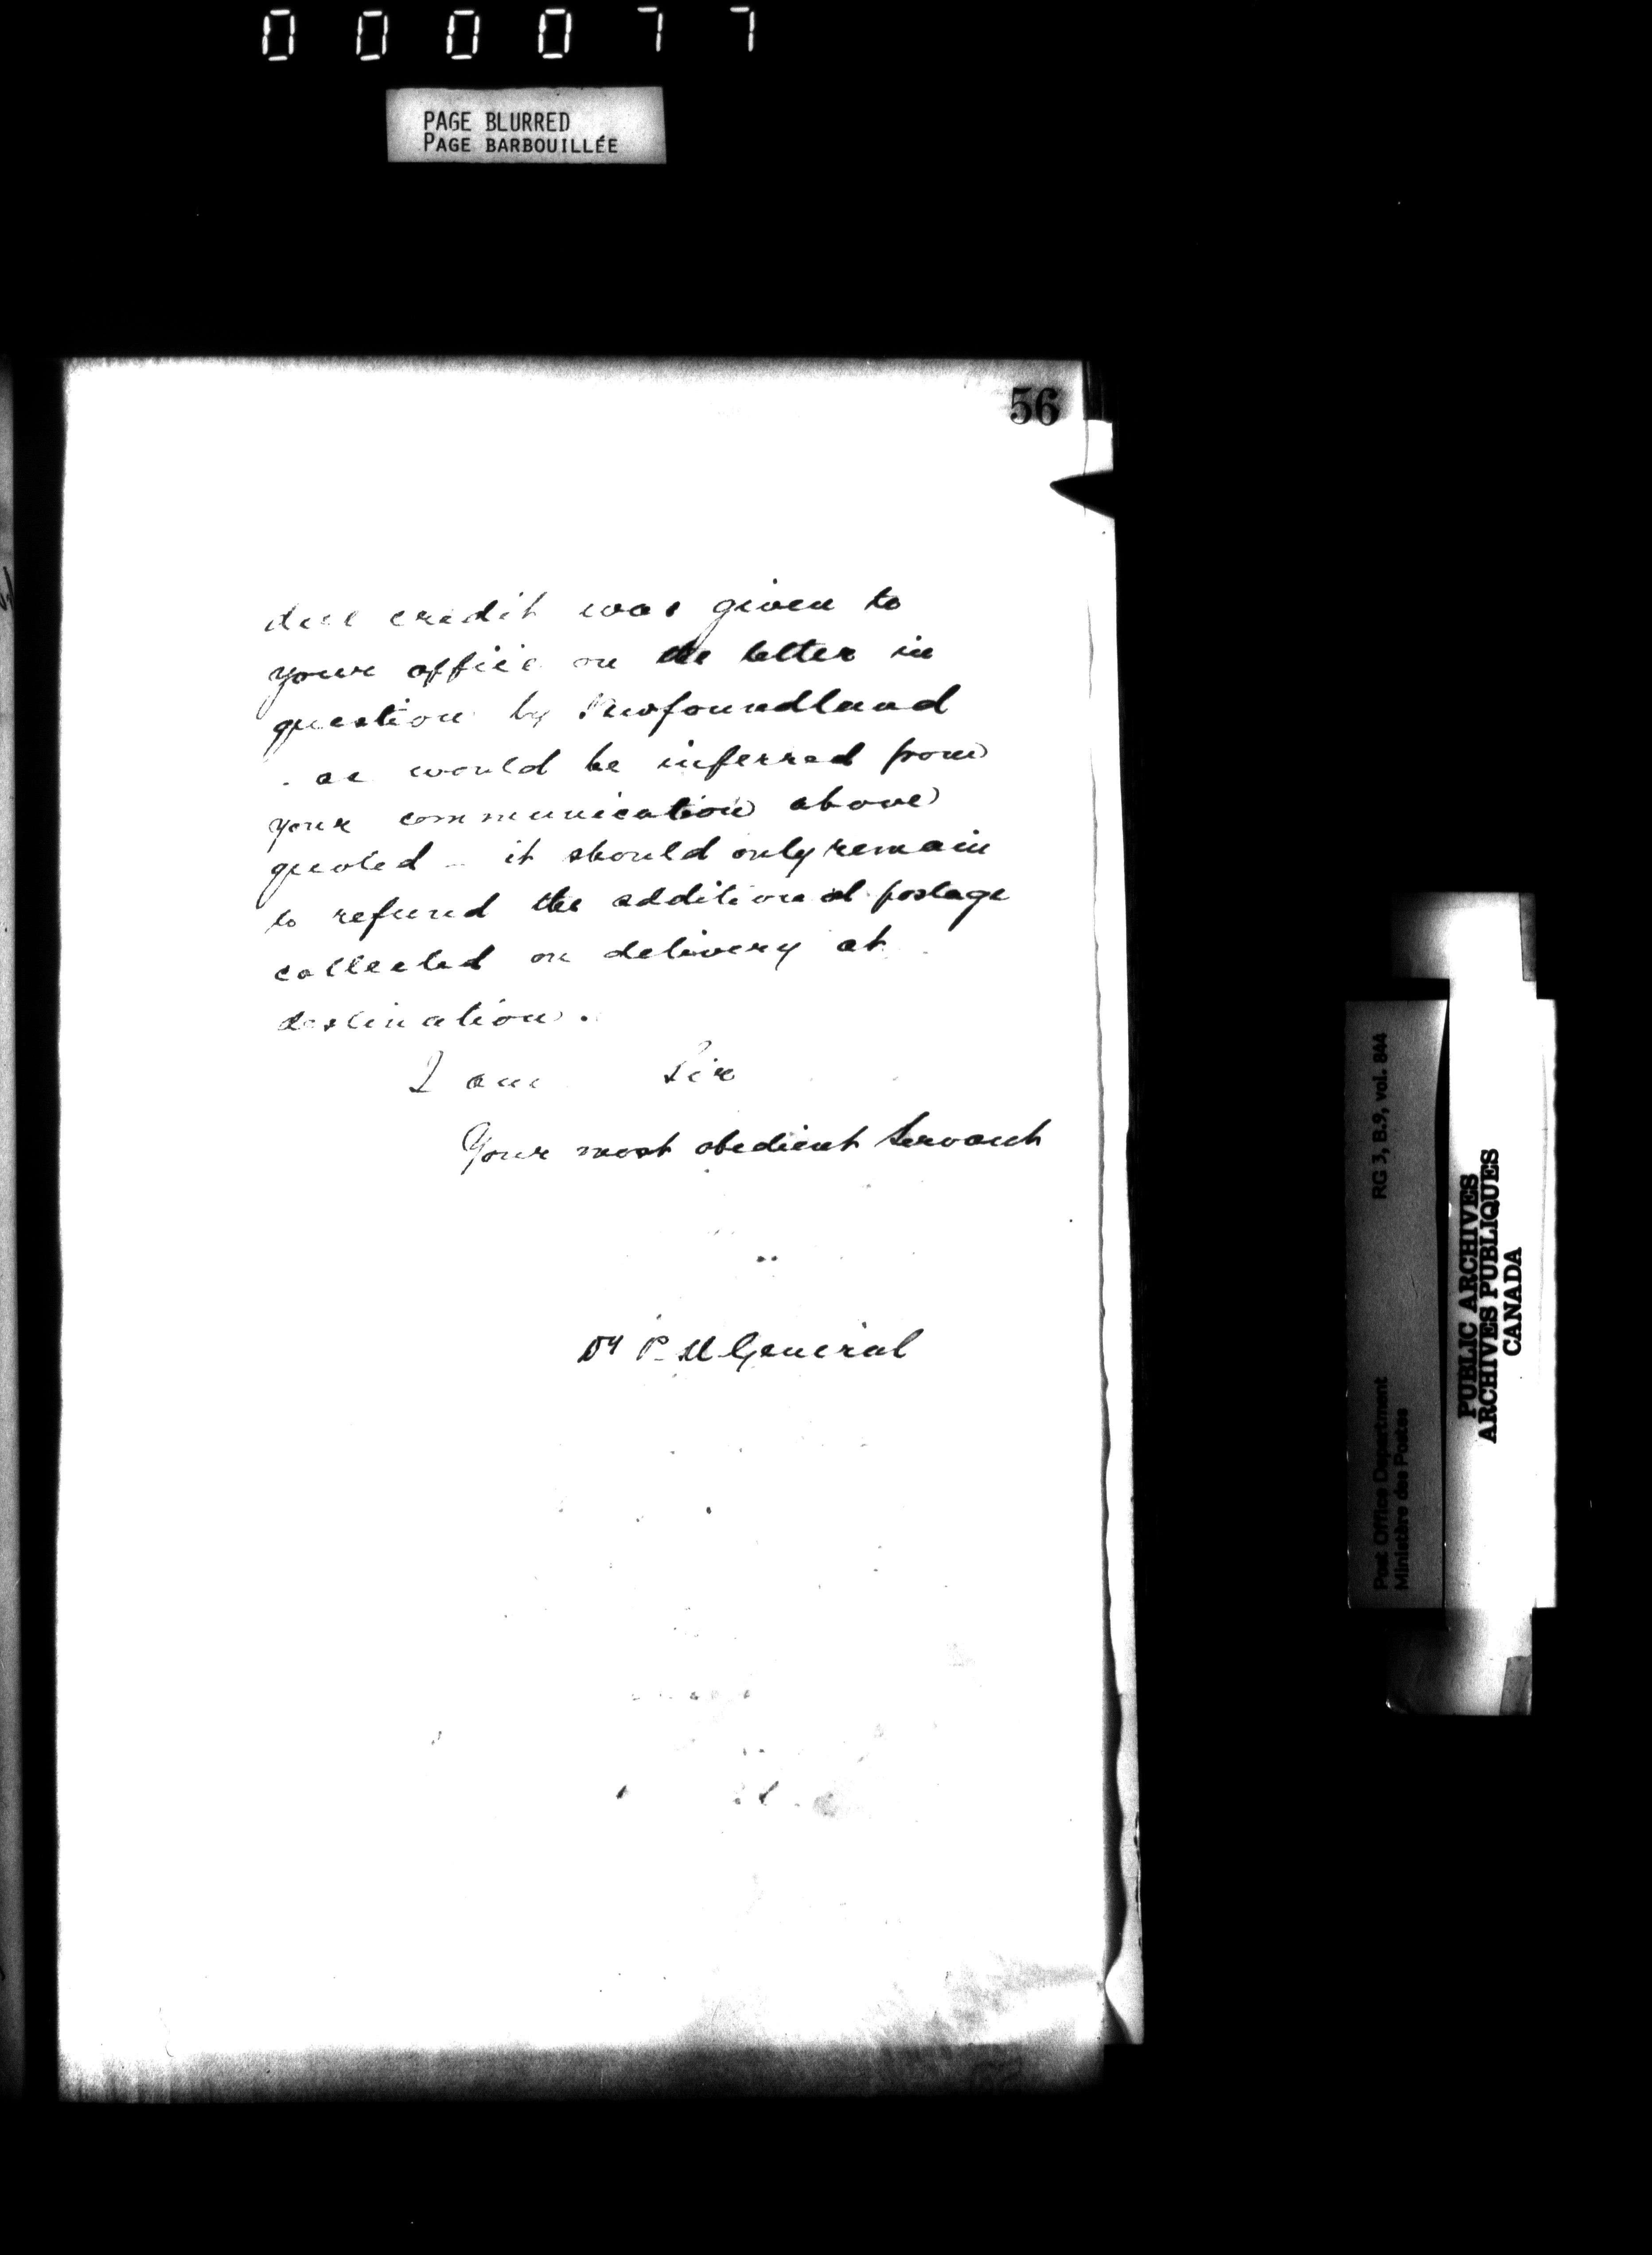 000077
PAGE BLURRED
PAGE BARBOUILLÉE
56
due credit was given to
your office on the letter in
question by Newfoundland
- as would be inferred from
your communication above
quoted - it should only remain
to refund the additional postage
collected on delivery at
destination.
I am Sir
Your most obedient Servant
Dy P. M General
RG 3, B.9, vol. 844
Post Office Department
Ministère des Postes
PUBLIC ARCHIVES
ARCHIVES PUBLIQUES
CANADA